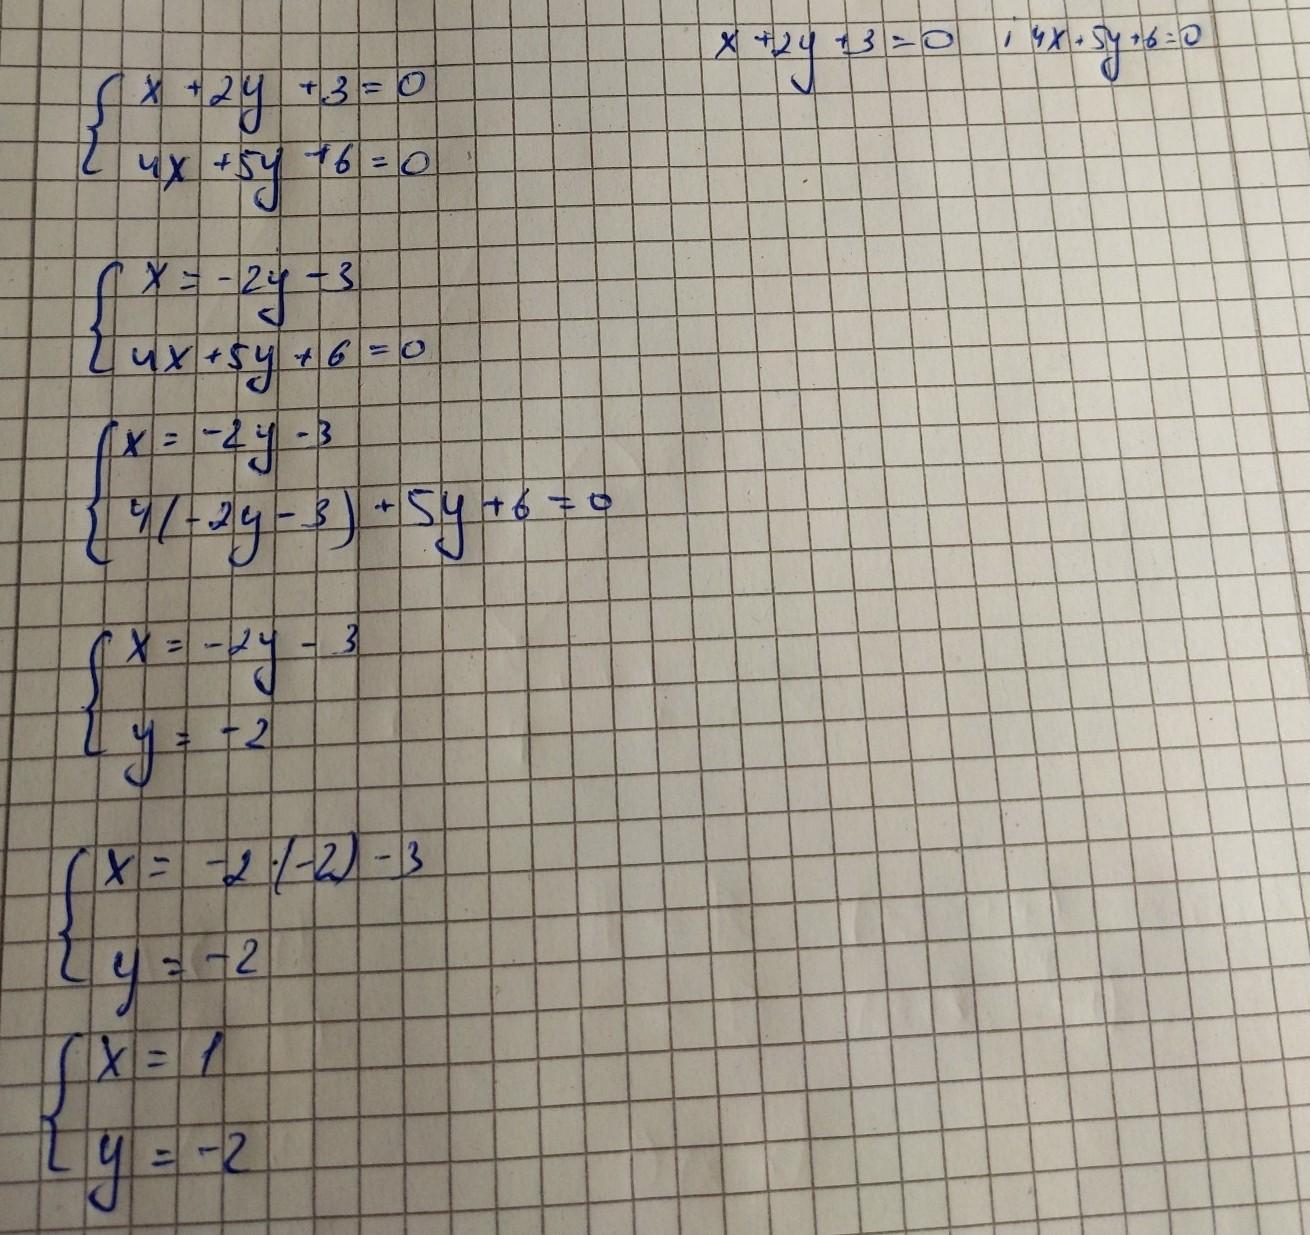 x + 2y + 3 = 0 ; 4x + 5y + 6 = 0
x + 2y + 3 = 0
4x + 5y + 6 = 0
x = -2y - 3
4x + 5y + 6 = 0
x = -2y - 3
4(-2y - 3) + 5y + 6 = 0
x = -2y - 3
y = -2
x = -2·(-2) - 3
y = -2
x = 1
y = -2